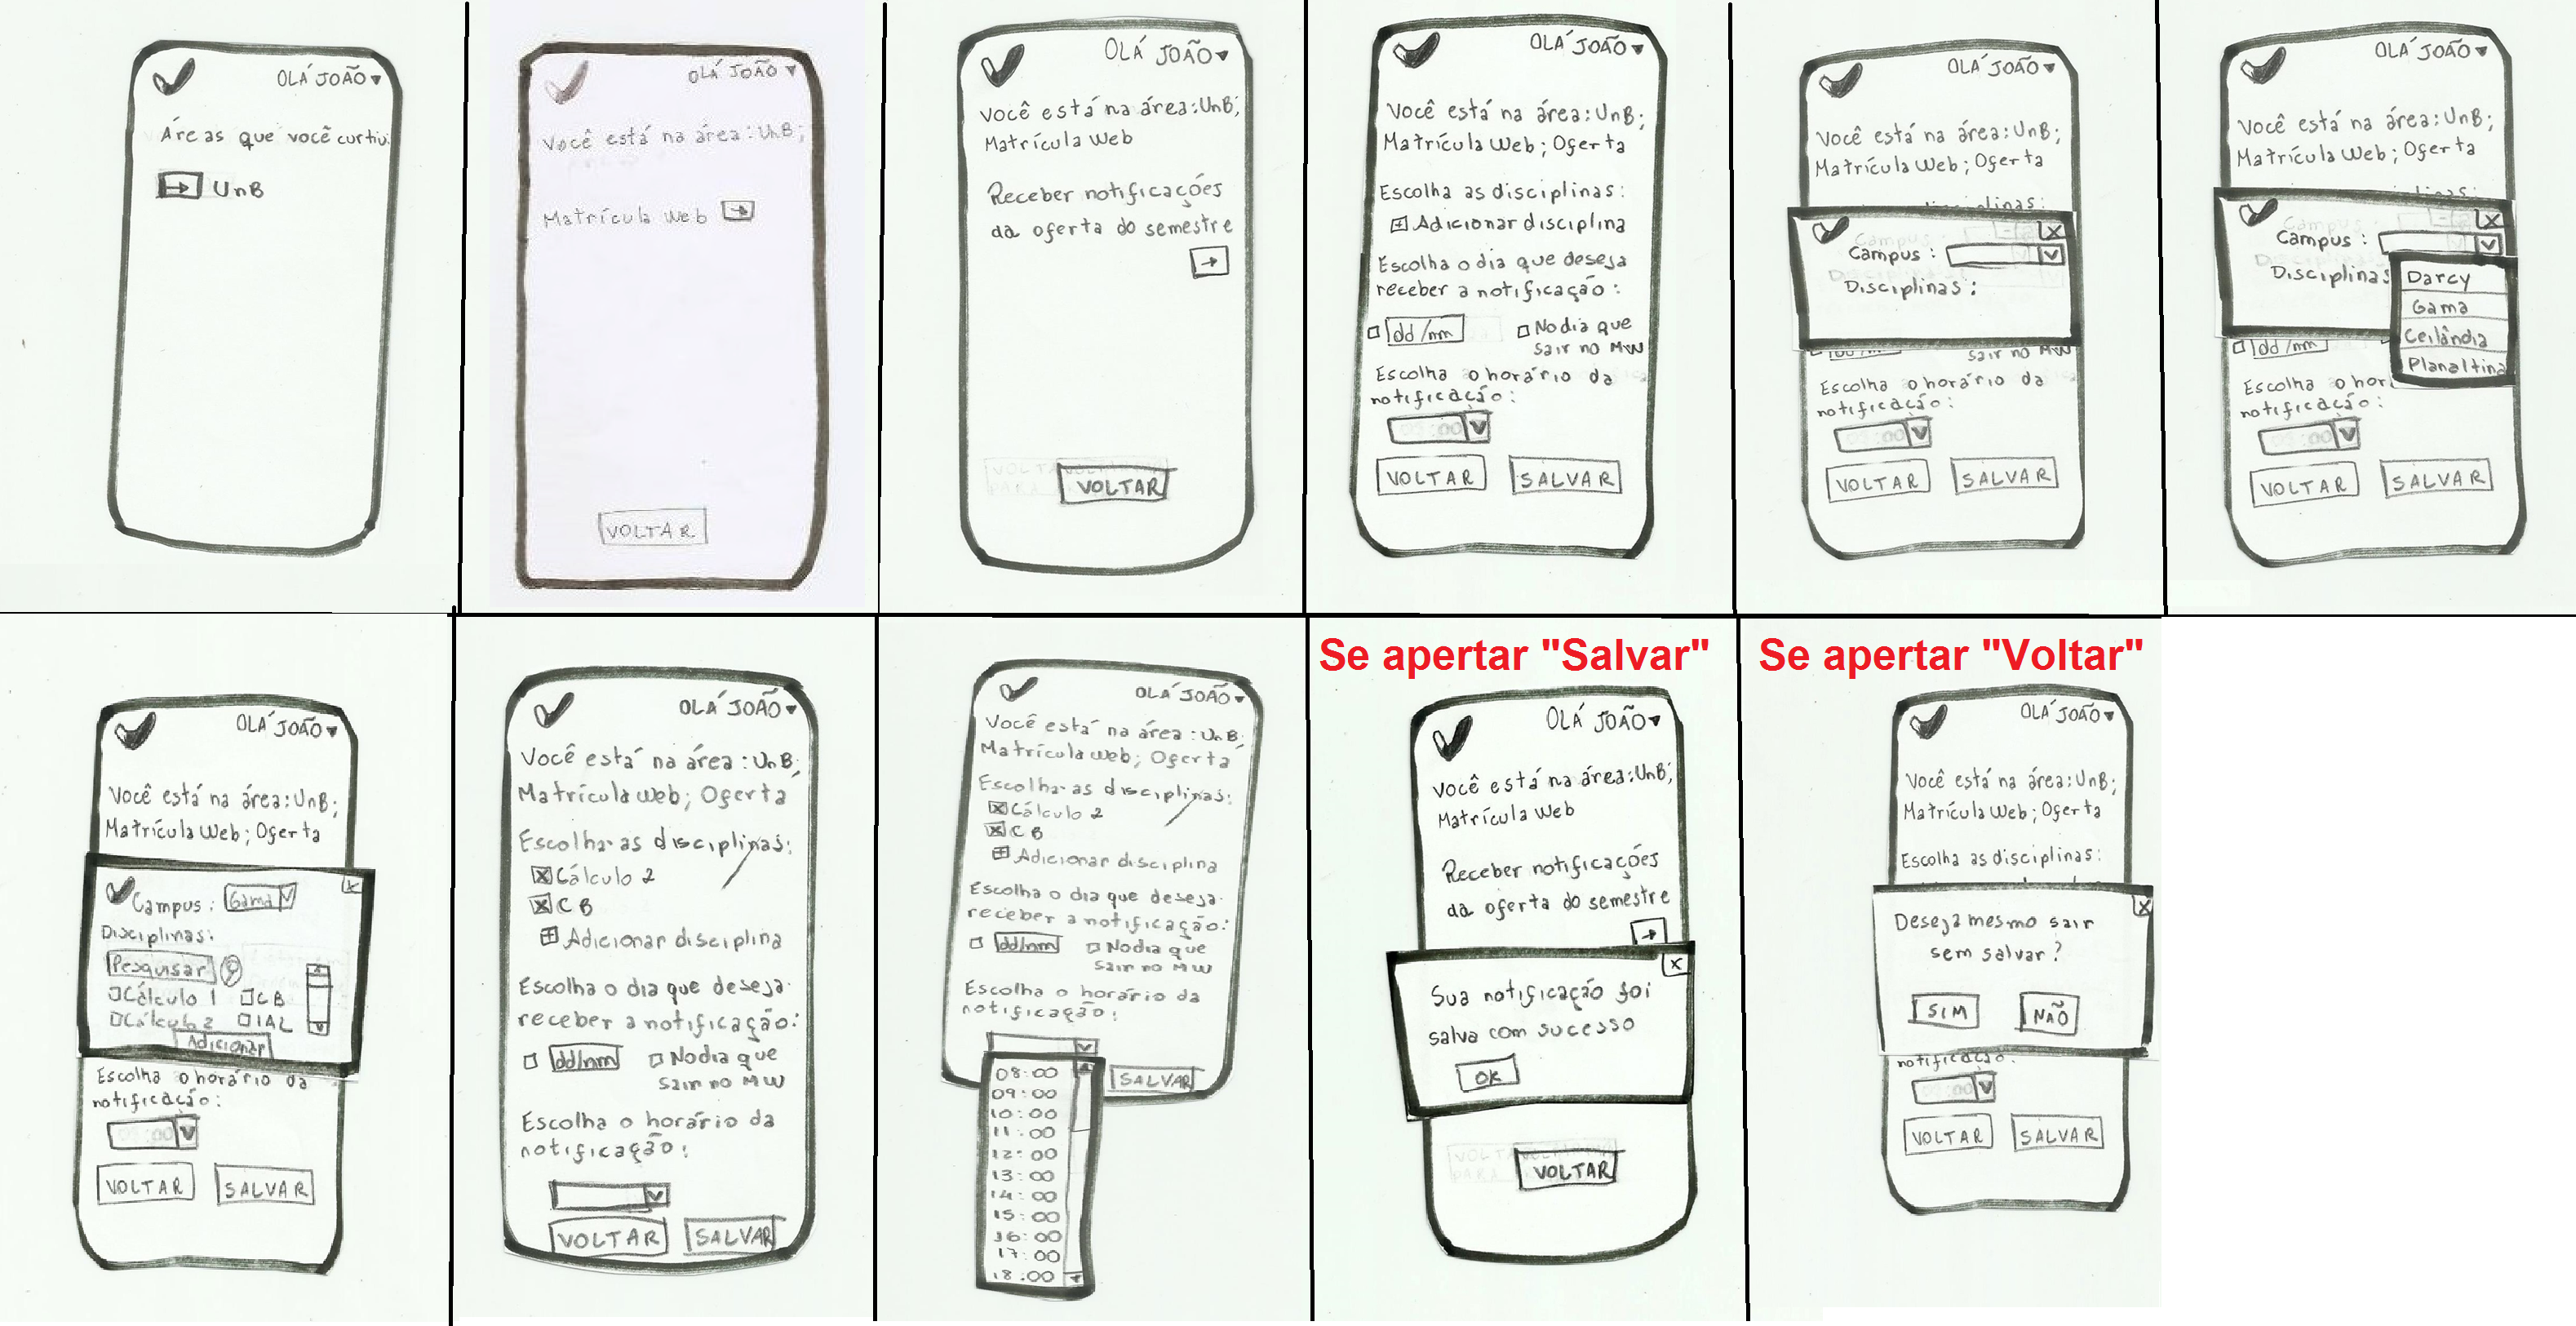 OLÁ JOÃO
Áreas que você curtiu:
UnB
OLÁ JOÃO
Você está na área: UnB;
Matrícula Web
VOLTAR
OLÁ JOÃO
Você está na área: UnB;
Matrícula Web
Receber notificações
da oferta do semestre
VOLTAR
OLÁ JOÃO
Você está na área: UnB;
Matrícula Web; Oferta
Escolha as disciplinas:
Adicionar disciplina
Escolha o dia que deseja
receber a notificação:
dd/mm
No dia que
sair no MW
Escolha o horário da
notificação:
VOLTAR
SALVAR
OLÁ JOÃO
Você está na área: UnB;
Matrícula Web; Oferta
Campus:
Disciplinas:
sair no MW
Escolha o horário da
notificação:
VOLTAR
SALVAR
OLÁ JOÃO
Você está na área: UnB;
Matrícula Web; Oferta
Campus:
Disciplinas
Darcy
Gama
Ceilândia
Planaltina
dd/mm
Escolha o hor
notificação:
VOLTAR
SALVAR
OLÁ JOÃO
Você está na área: UnB;
Matrícula Web; Oferta
Campus: Gama
Disciplinas:
Pesquisar
Cálculo 1 CB
Cálculo 2 IAL
Adicionar
Escolha o horário da
notificação:
VOLTAR
SALVAR
OLÁ JOÃO
Você está na área: UnB;
Matrícula Web; Oferta
Escolha as disciplinas:
Cálculo 2
CB
Adicionar disciplina
Escolha o dia que deseja
receber a notificação:
dd/mm
No dia que
sair no MW
Escolha o horário da
notificação:
VOLTAR
SALVAR
OLÁ JOÃO
Você está na área: UnB;
Matrícula Web; Oferta
Escolha as disciplinas:
Cálculo 2
CB
Adicionar disciplina
Escolha o dia que deseja
receber a notificação:
dd/mm
No dia que
sair no MW
Escolha o horário da
notificação:
08:00
09:00
10:00
11:00
12:00
13:00
14:00
15:00
16:00
17:00
18:00
SALVAR
Se apertar "Salvar"
OLÁ JOÃO
Você está na área: UnB;
Matrícula Web
Receber notificações
da oferta do semestre
Sua notificação foi
salva com sucesso
OK
VOLTAR
Se apertar "Voltar"
OLÁ JOÃO
Você está na área: UnB;
Matrícula Web; Oferta
Escolha as disciplinas:
Deseja mesmo sair
sem salvar?
SIM
NÃO
notificação:
VOLTAR
SALVAR